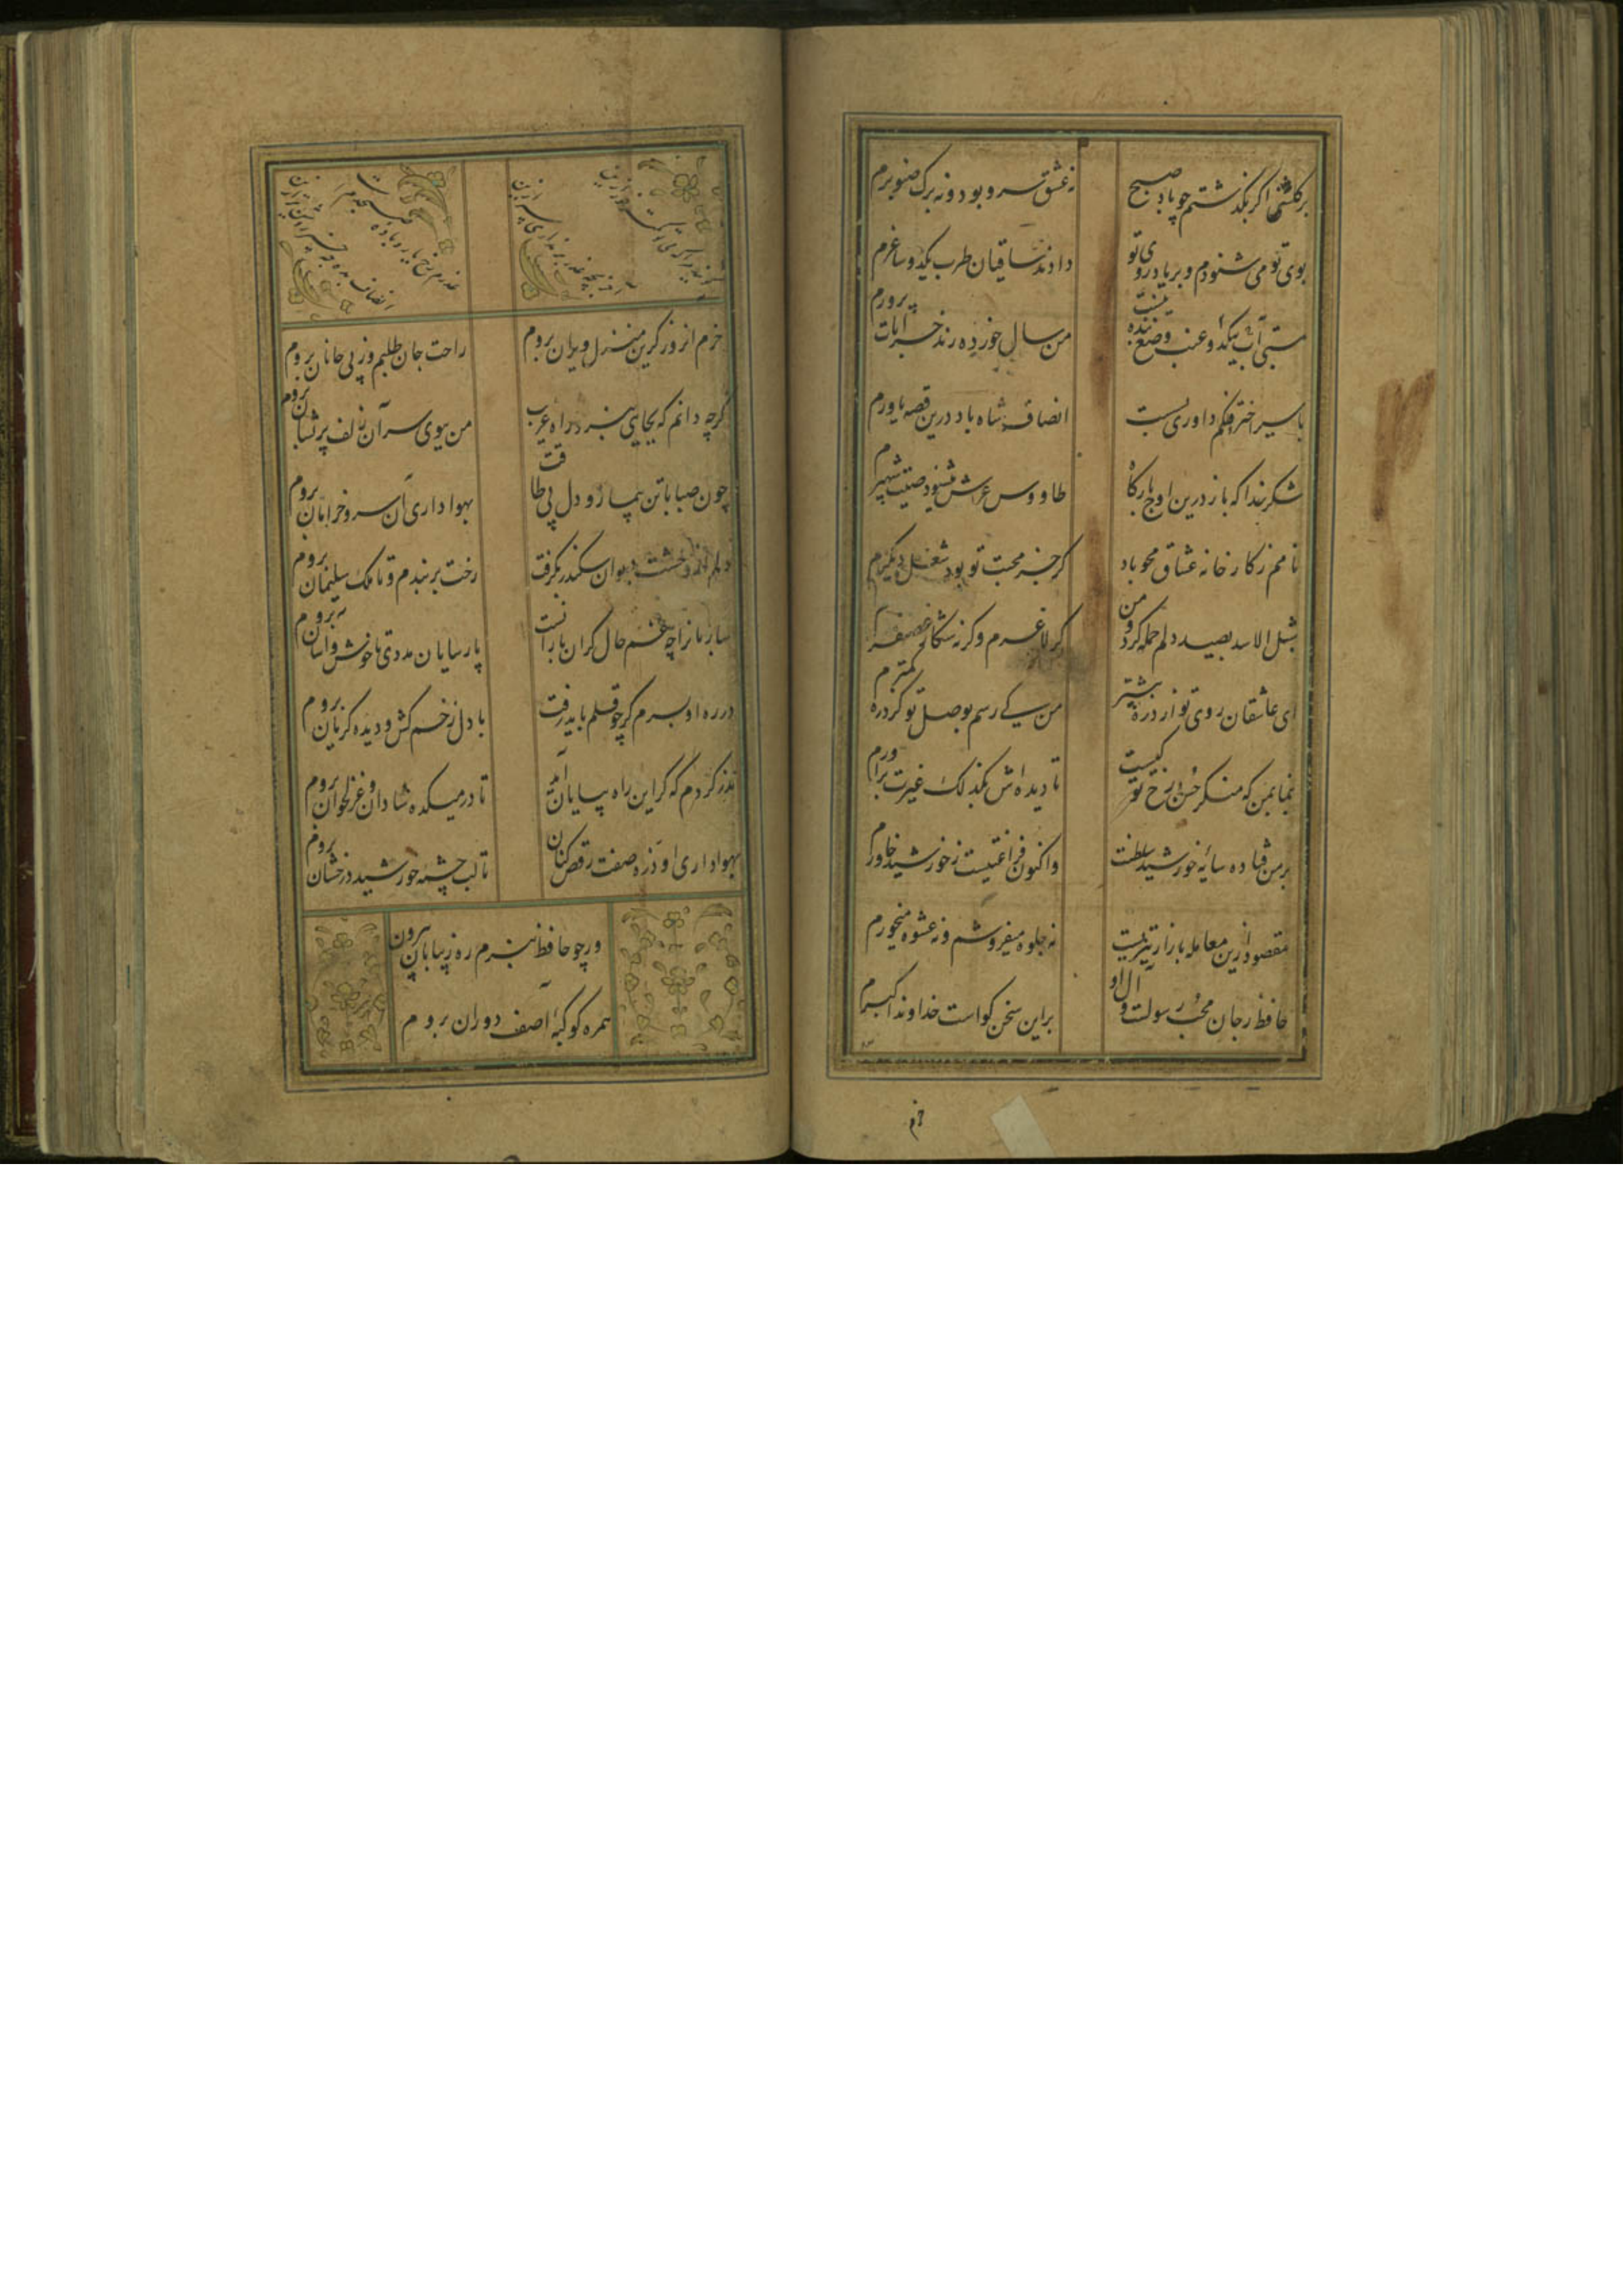 بر گلشنی اگر بگذشتم چو باد صبح
نه عشق سرو بود و نه برک صنوبرم
بوی تو می شنودم و بر یاد روی تو
دادند ساقیان طرب یکدو ساغرم
مستی بآب یکدو عنب وضع بنده نیست
من سال خورده رند خرابات پرورم
با سیر اختر فلکم داوری بسیست
انصاف شاه باد درین قصه یاورم
شکر خدا که باز درین اوج بارگاه
طاووس عرش میشنود صیت شهپرم
نامم ز کارخانه عشاق محو باد
گر جز محبت تو بود شغل دیگرم
شبل الاسد بصید دلم حمله کرد و من
گر لاغرم وگرنه شکار غضنفرم
ای عاشقان روی تو از ذره بیشتر
من کی رسم بوصل تو کز ذره کمترم
بنما بمن که منکر حسن رخ تو کیست
تا دیده اش بکزلک غیرت برآورم
بر من فتاده سایه خورشید سلطنت
واکنون فراغتیست ز خورشید خاورم
مقصود ازین معامله بازار تیزیست
نه جلوه میفروشم و نه عشوه میخورم
حافظ ز جان محب رسولست و آل او
بر این سخن گواست خداوند اکبرم
خرم
خرم آنروز کزین منزل ویران بروم
راحت جان طلبم وز پی جانان بروم
گرچه دانم که بجایی نبرد راه غریب
من ببوی سر آن زلف پریشان بروم
چون صبا با تن بیمار و دل بی طاقت
بهواداری آن سرو خرامان بروم
دلم از وحشت زندان سکندر بگرفت
رخت بربندم و تا ملک سلیمان بروم
پارسایان مددی تا خوش و آسان بروم
در ره او بسرم گر چو قلم باید رفت
با دل زخم کش و دیده گریان بروم
نذر کردم که گر این راه بپایان آید
تا در میکده شادان و غزلخوان بروم
بهواداری او ذره صفت رقص کنان
تا لب چشمه خورشید درخشان بروم
ور چو حافظ نبرم ره ز بیابان بیرون
همره کوکبه آصف دوران بروم